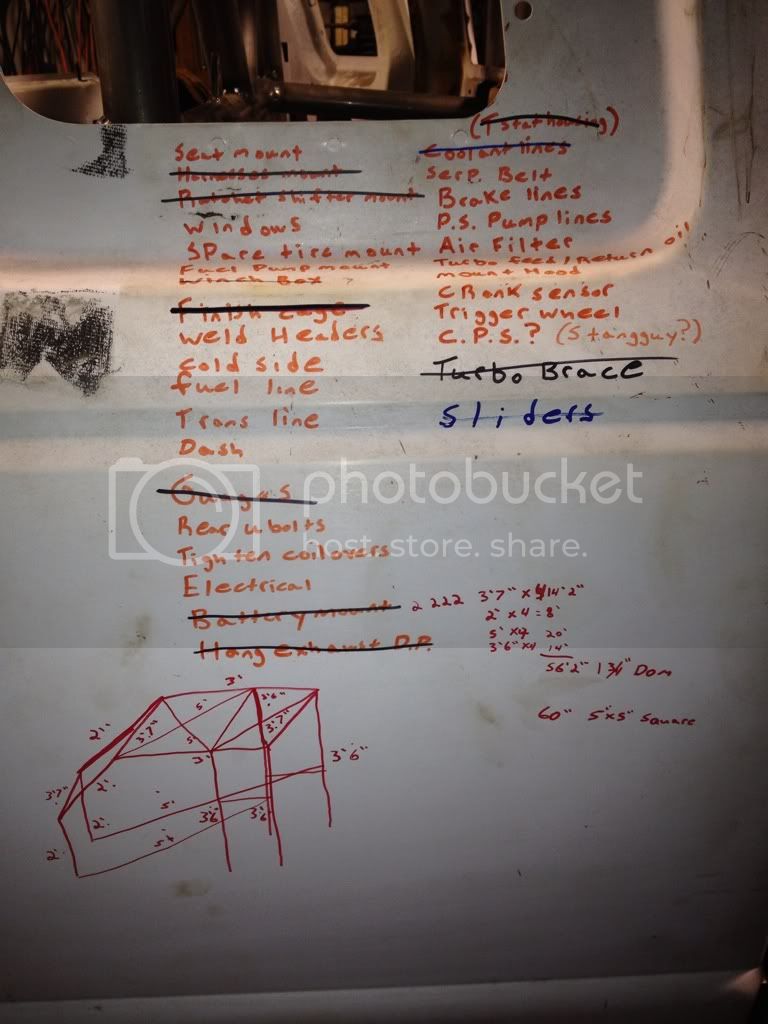 Seat mount
Harness mount
Ratchet Shifter mount
Windows
Spare tire mount
Fuel Pump mount
Winch Box
Finish cage
Weld Headers
Cold side
fuel line
Trans line
Dash
Gauges
Rear u bolts
Tighten coilovers
Electrical
Battery mount
Hang exhaust D.P.
(T stat housing)
Coolant lines
Serp. Belt
Brake lines
P.S. Pump lines
Air Filter
Turbo feed/Return oil
mount Hood
Crank sensor
Trigger wheel
C.P.S.? (Stangguy?)
Turbo Brace
Sliders
photobucket
host. store. share.
2 222 3'7" x 4 14'2"
2' x 4 = 8'
5' x4 20'
3'6" x4 14'
56'2" 1 3/4" Dom
60" 5"x5" Square
3'
2'
5'
3'6"
3'7"
3'7"
5'
3'
3'6"
3'7"
2'
5'
2'
3'6"
3'6"
2'